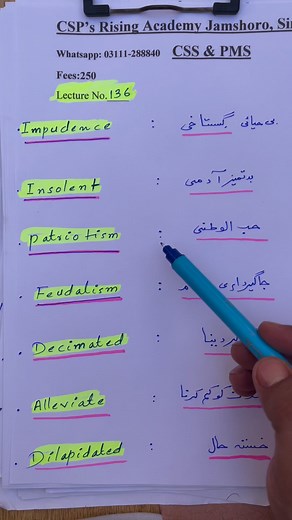 CSP's Rising Academy Jamshoro, Sin
Whatsapp: 03111-288840 CSS & PMS
Fees:250
Lecture No. 136
Impudence : بے حیائی گستاخی
Insolent : بدتمیز آدمی
Patriotism : حب الوطنی
Feudalism : جاگیرداری
Decimated : دینا
Alleviate : کو کم کرنا
Dilapidated : خستہ حال